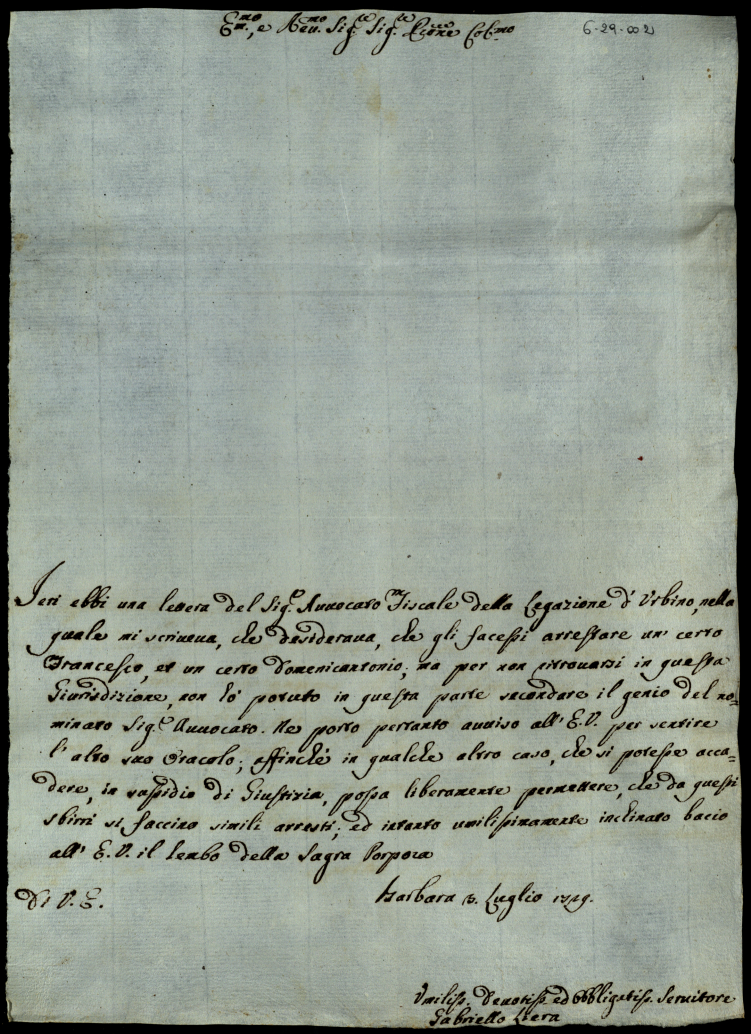 Em.mo, e Reu.mo Sig.re Sig.re P̃rone Col.mo
6-29-002
Ieri ebbi una lettera del Sig.e Auuocato Fiscale della Legazione d'Urbino, nella
quale mi scriueua, che desideraua, che gli facessi arrestare un' certo
Francesco, et un certo Domenicantonio; ma per non ritrouarsi in questa
Giurisdizione, non ho' potuto in questa parte secondare il genio del no=
minato Sig.e Auuocato. Ne porto pertanto auuiso all' E.V. per sentire
l' alto suo Oracolo; affinche' in qualche altro caso, che si potesse acca=
dere, in sussidio di Giustizia, possa liberamente permettere, che da questi
sbirri si faccino simili arresti; ed intanto umilissimamente inclinato bacio
all' E.V. il lembo della Sagra Porpora
Di V.E.
Barbara 3. Luglio 1749.
Vmiliss. Deuotiss. ed Obbligatiss. Seruitore
Gabriello